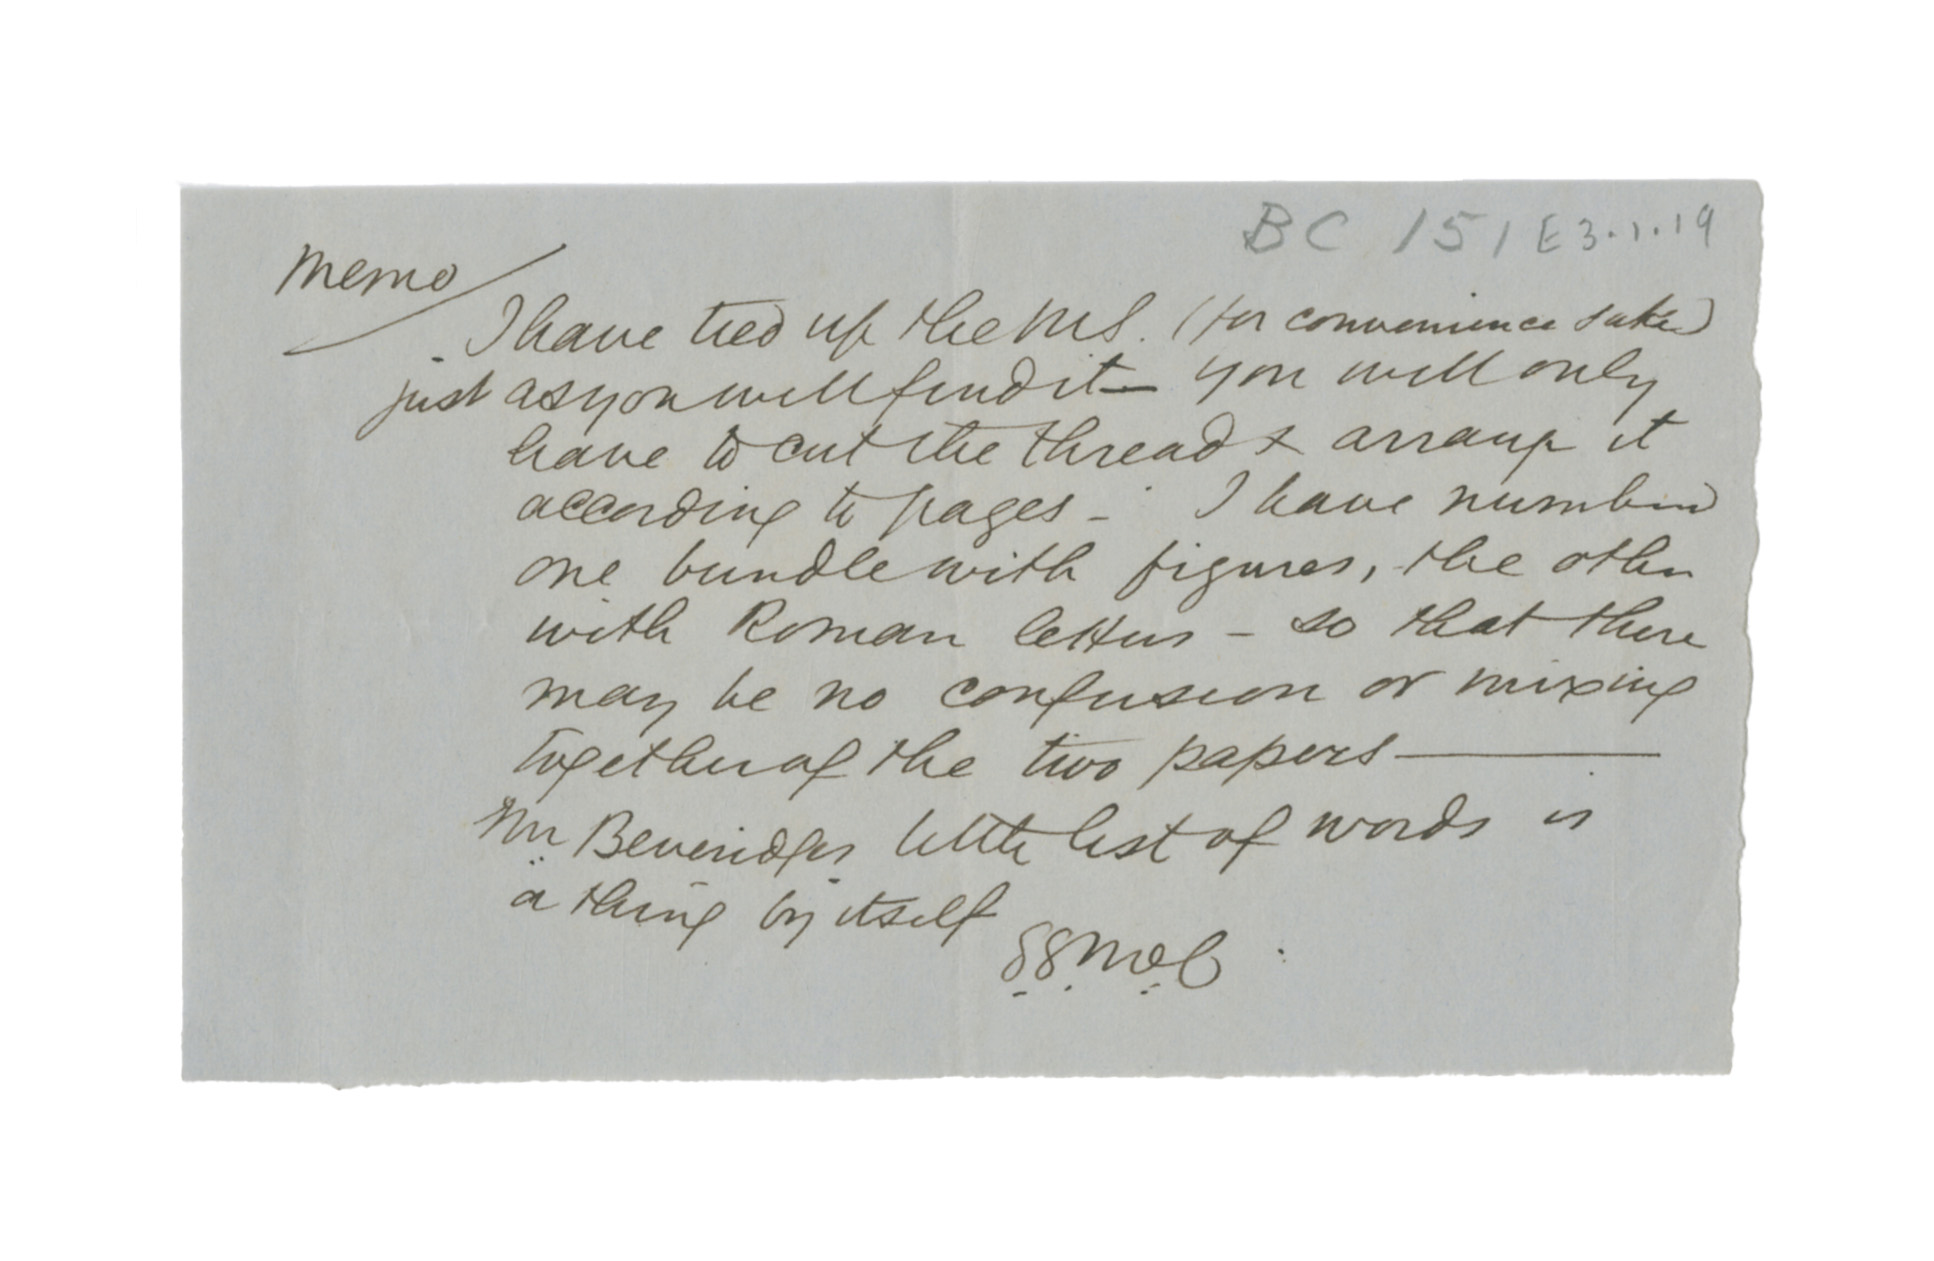 BC 151 E3.1.19
Memo
I have tied up the MS. (for convenience sake)
just as you will find it — you will only
have to cut the thread & arrange it
according to pages - I have numbered
one bundle with figures, the other
with Roman letters - so that there
may be no confusion or mixing
together of the two papers —
Mr Beveridges little list of words is
a thing by itself